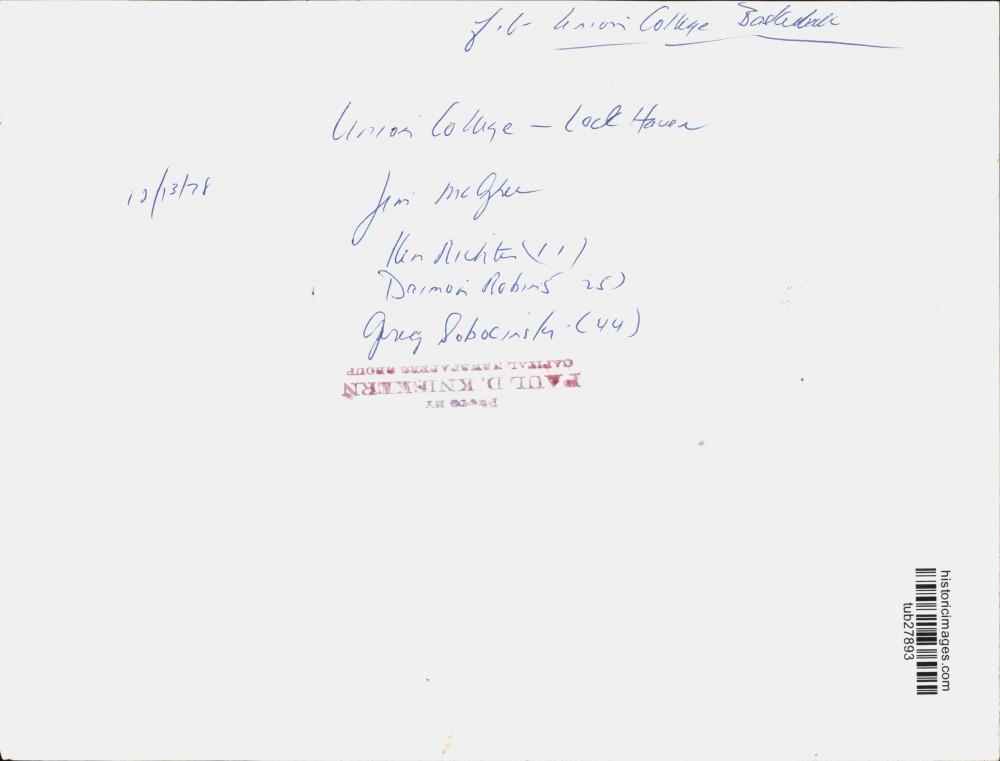 Union College Basketball
Union College — Lock Haven
Jim McGhee
Ken Richter (11)
Daimon Robins 25)
Greg Sobocinski (44)
PHOTO BY
PAUL D. KNISKERN
CAPITAL NEWSPAPERS GROUP
historicimages.com
tub27893